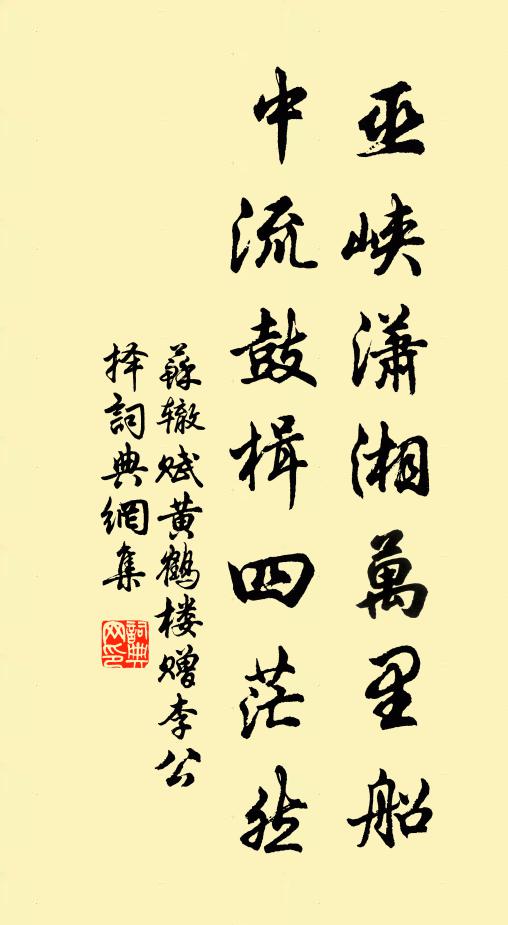 巫峡潇湘萬里船
中流鼓楫四茫然
蘇辙赋黄鹤楼赠李公
择詞典網集
詞典
网印